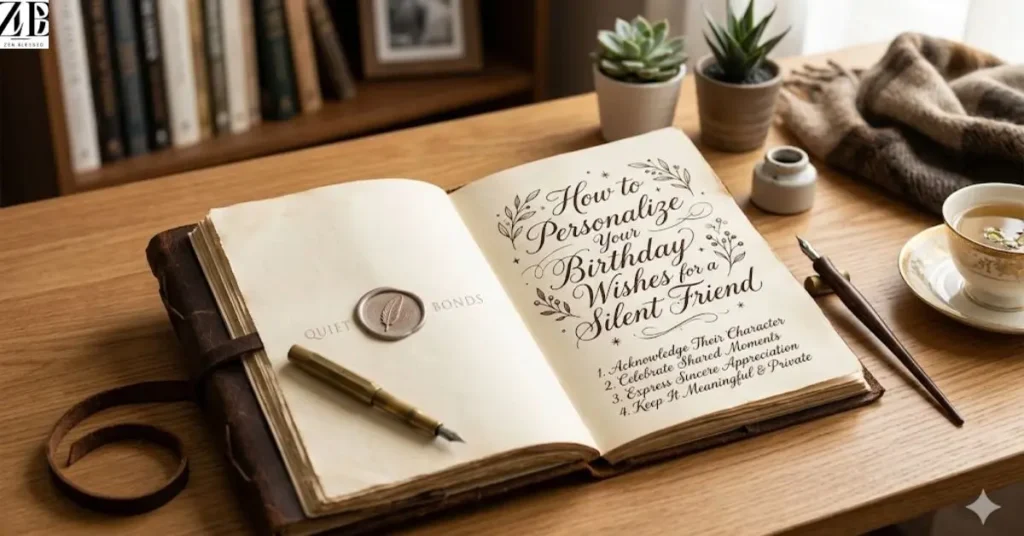 QUIET BONDS
How to
Personalize
Your
Birthday
Wishes for a
Silent Friend
1. Acknowledge Their Character
2. Celebrate Shared Moments
3. Express Sincere Appreciation
4. Keep It Meaningful & Private